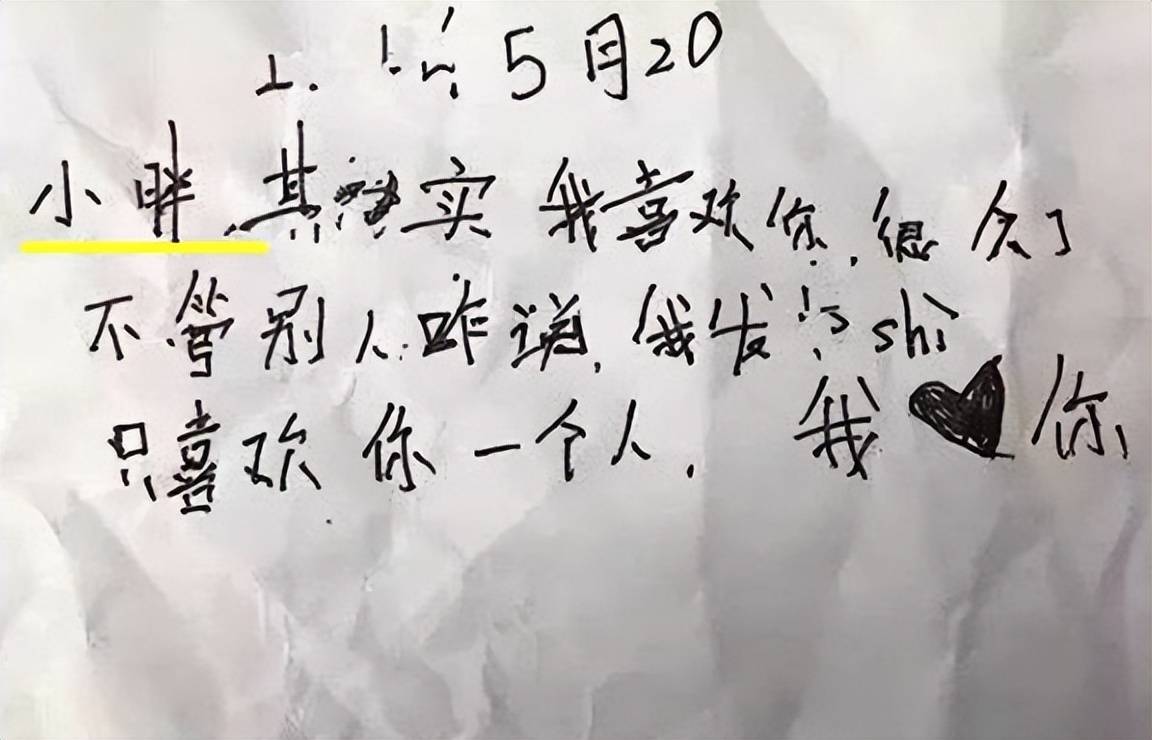 5月20
小胖.其实 我喜欢你.很久了
不管别人咋说.我发 shi
只喜欢 你一个人. 我♥你